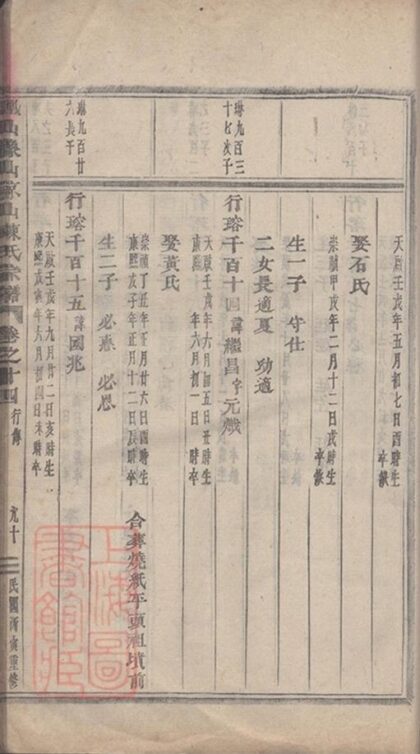 天啟壬戌年五月初七日酉時生
卒缺
娶石氏
崇禎甲戌年二月十二日戌時生
卒缺
生一子 守仕
二女長適夏 幼適
琳九百三
十七次子
行瑢千百十四諱繼昌字元熾
天啟壬戌年六月初五日丑時生
康熙 年六月初一日 時卒
娶黃氏
崇禎丁丑年正月廿六日酉時生
康熙戊子年正月十二日辰時卒
合葬燒紙平頭祖墳前
生二子 必泰 必恩
琳九百廿
六長子
行瑢千百十五諱國兆
天啟壬戌年九月廿二日亥時生
康熙戊寅年六月初四日未時卒
山陳氏宗譜
卷之十四
行傳
九十
民國丙寅重修
上海圖書館藏